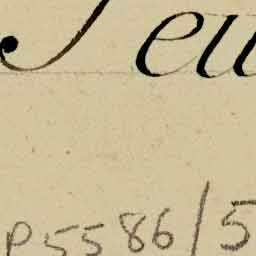 Jeu
P5586/5